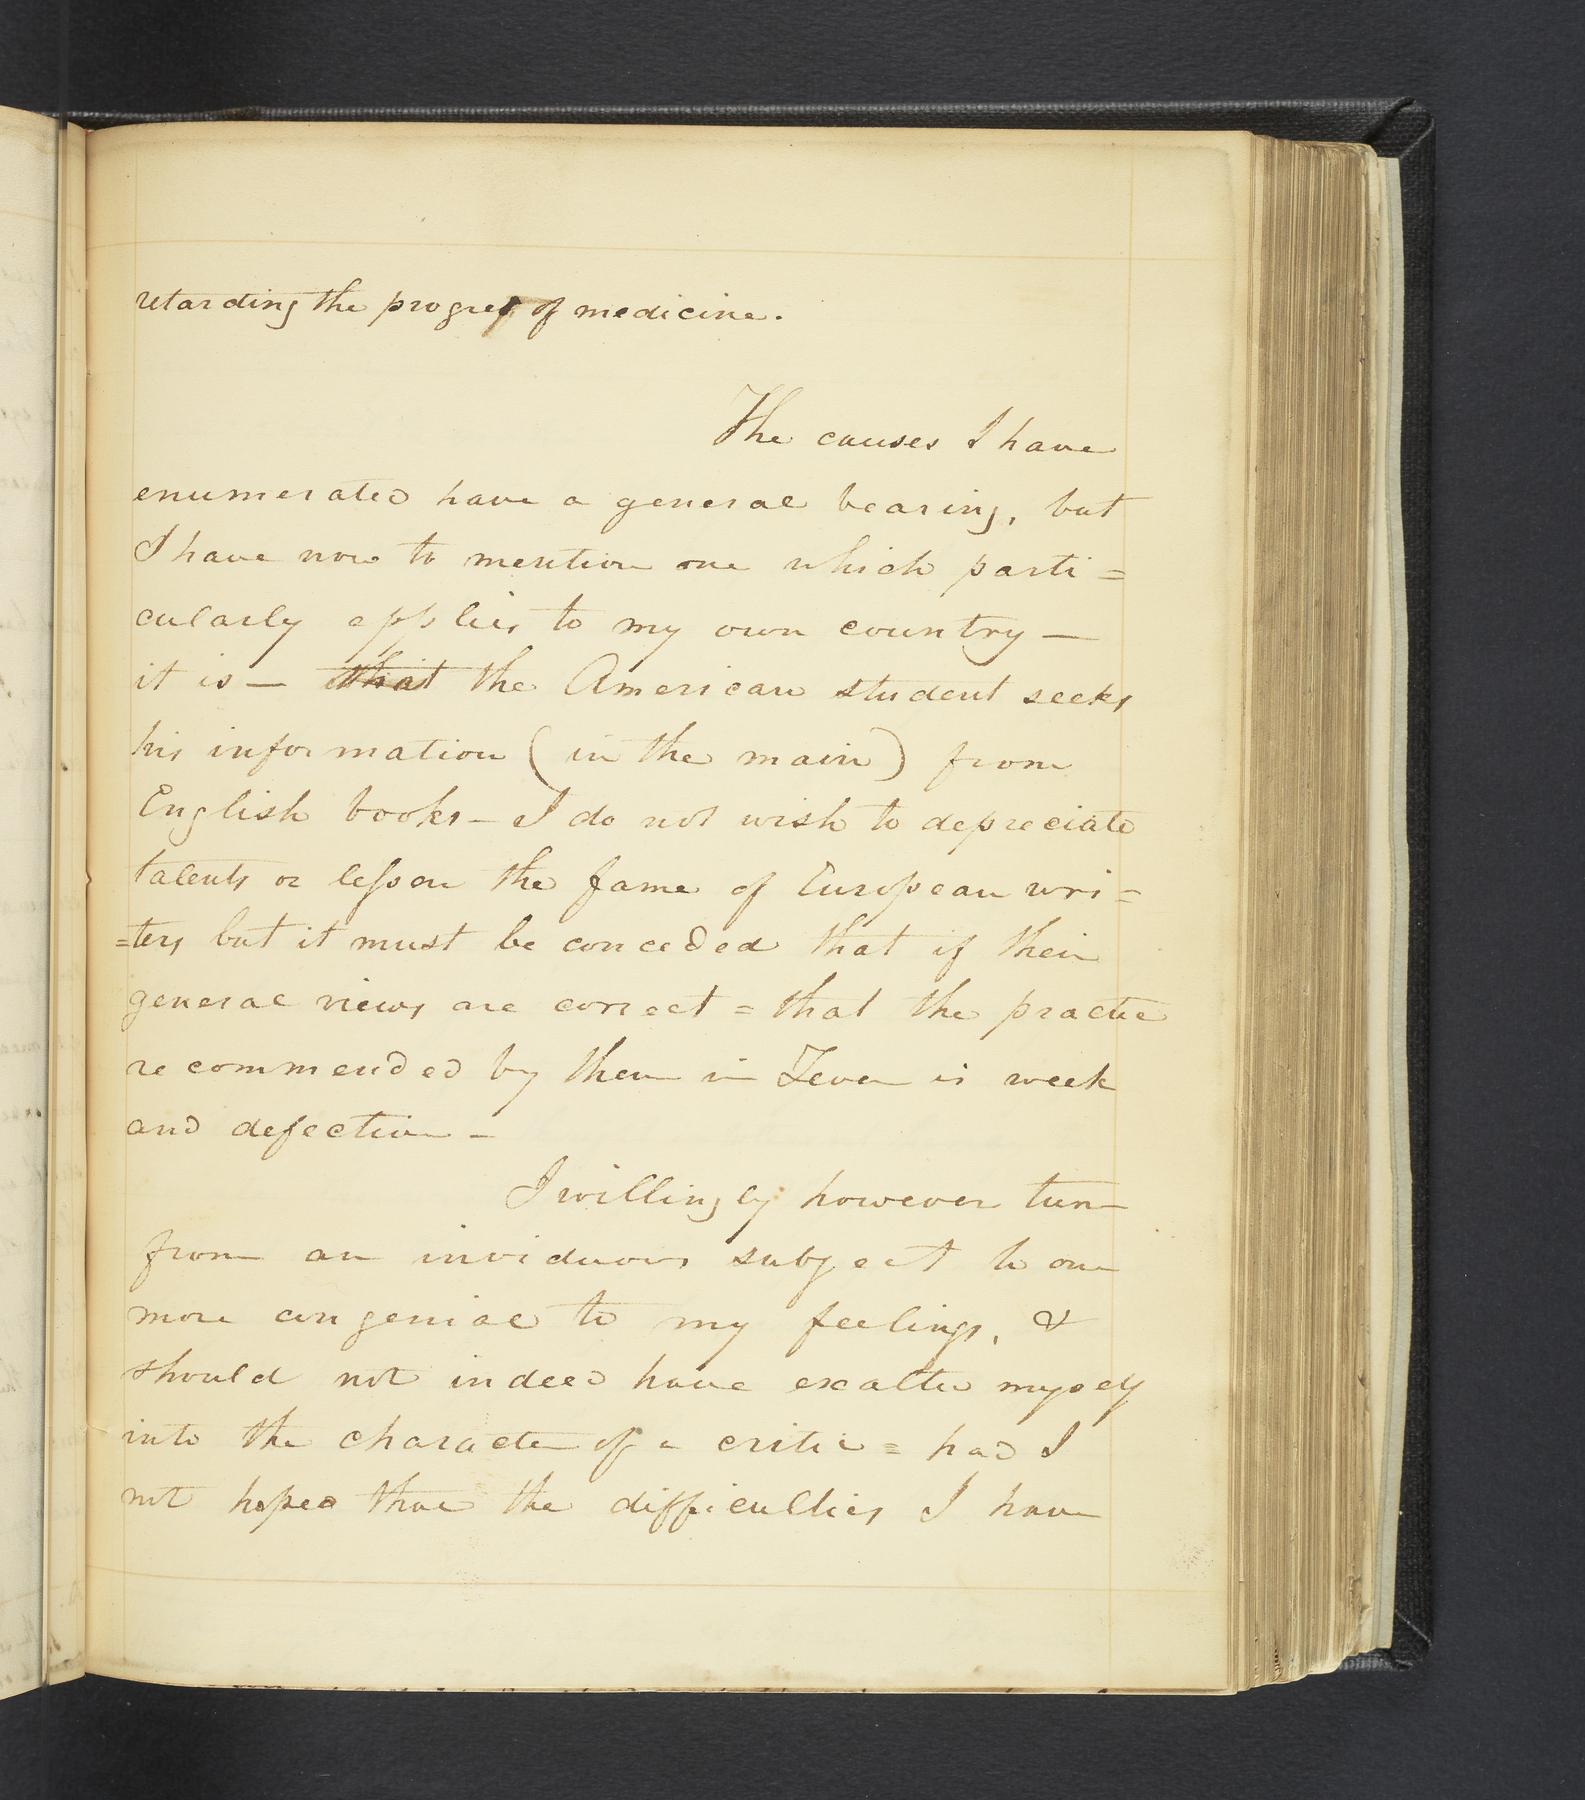 retarding the progress of medicine.
The causes I have
enumerated have a general bearing, but
I have now to mention one which parti=
cularly applies to my own country —
it is — that the American student seeks
his information (in the main) from
English books — I do not wish to depreciate
talents or lessen the fame of European wri=
=ters but it must be conceded that if their
general views are correct = that the practice
recommended by them in Fever is weak
and defective —
I willingly however turn
from an inviduous subject to one
more congenial to my feelings, &
should not indeed have exalted myself
into the character of a critic = had I
not hoped that the difficulties I have